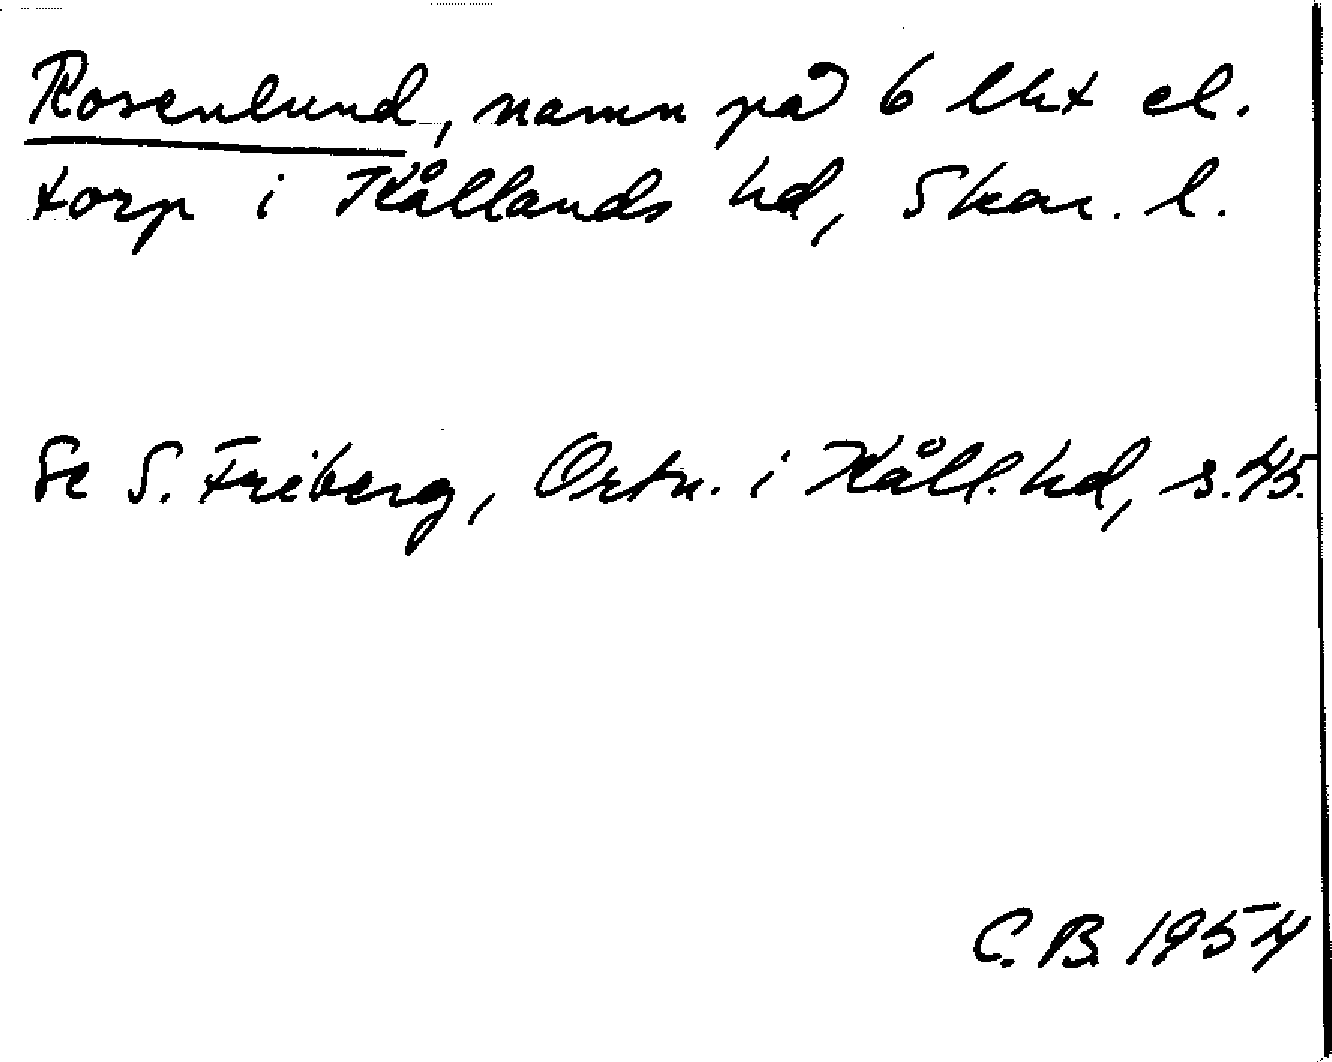 Rosenlund, namn på 6 lht el.
torp i Kållands hd, Skar. l.
Se S. Friberg, Ortn. i Kåll. hd, s. 45.
C. B. 1954